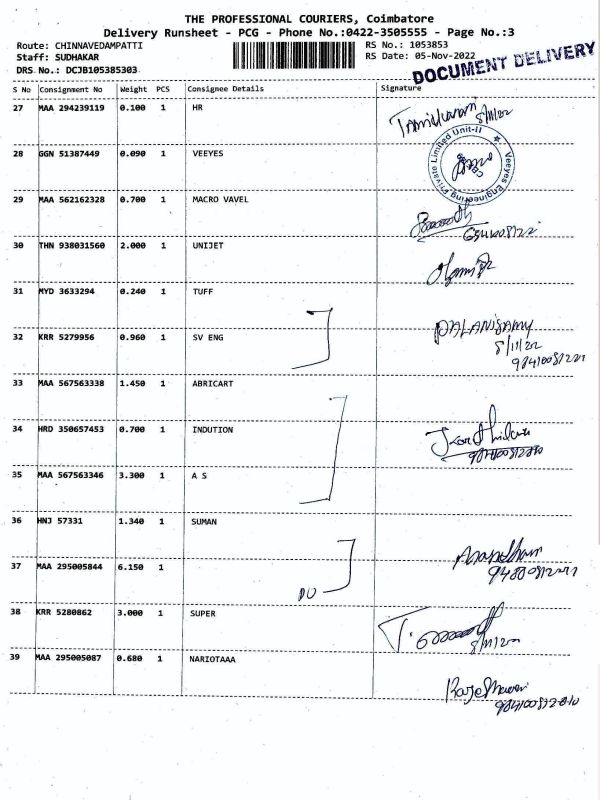 THE PROFESSIONAL COURIERS, Coimbatore
Delivery Runsheet - PCG - Phone No.:0422-3505555 - Page No.:3
Route: CHINNAVEDAMPATTI RS No.: 1053853
Staff: SUDHAKAR RS Date: 05-Nov-2022
DRS No.: DCJB105385303
DOCUMENT DELIVERY
S No Consignment No Weight PCS Consignee Details Signature
27 MAA 294239119 0.100 1 HR
28 GGN 51387449 0.090 1 VEEYES
Veeyes Engineering Private Limited Unit-II
29 MAA 562162328 0.700 1 MACRO VAVEL
30 THN 938031560 2.000 1 UNIJET
31 MYD 3633294 0.240 1 TUFF
32 KRR 5279956 0.960 1 SV ENG
PALANISAMY
8/11/22
33 MAA 567563338 1.450 1 ABRICART
34 HRD 350657453 0.700 1 INDUTION
35 MAA 567563346 3.300 1 A S
36 HNJ 57331 1.340 1 SUMAN
37 MAA 295005844 6.150 1
38 KRR 5280862 3.000 1 SUPER
39 MAA 295005087 0.680 1 NARIOTAAA